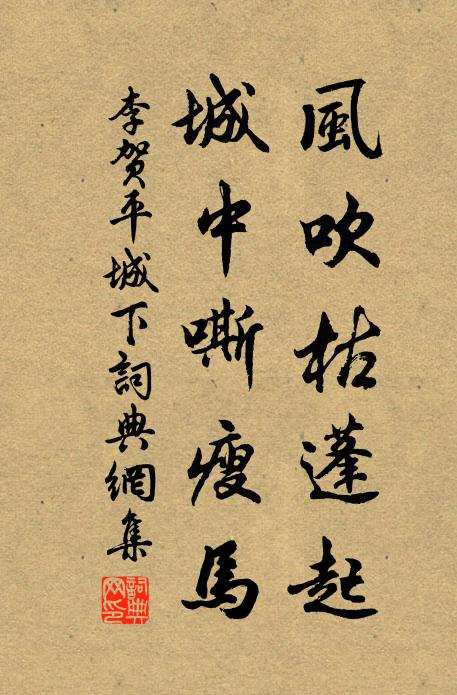 風吹枯蓬起
城中嘶瘦馬
李賀平城下詞典網集
詞典網印